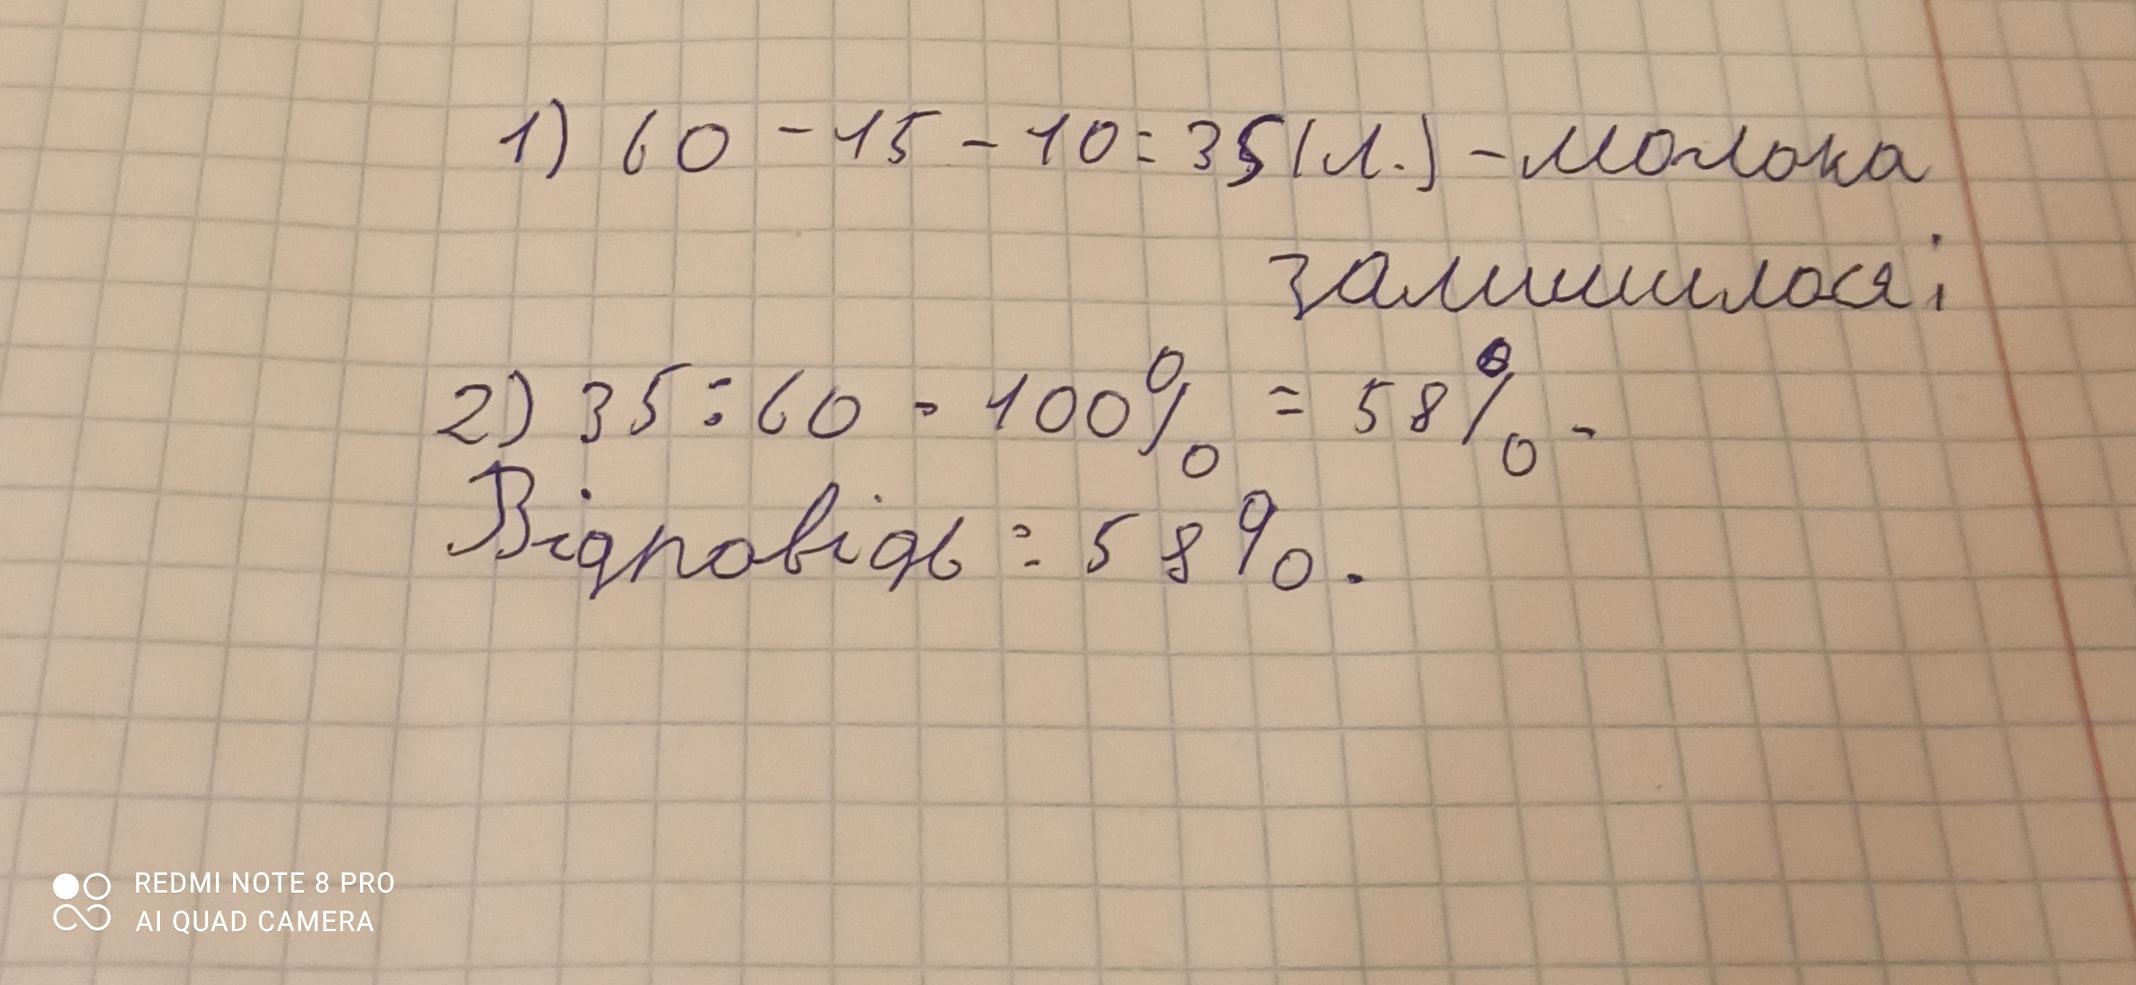 1) 60 - 15 - 10 = 35 (л.) - молока
залишилося;
2) 35 : 60 · 100% = 58% -
Відповідь: 58%.
REDMI NOTE 8 PRO
AI QUAD CAMERA